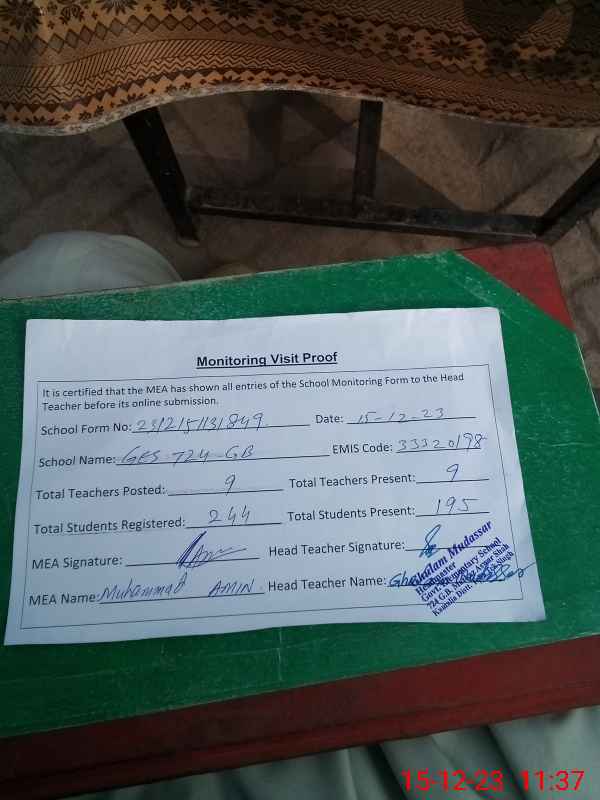 Monitoring Visit Proof
It is certified that the MEA has shown all entries of the School Monitoring Form to the Head
Teacher before its online submission.
School Form No: 2312151131849 Date: 15-12-23
School Name: GES 724-GB EMIS Code: 33320198
Total Teachers Posted: 9 Total Teachers Present: 9
Total Students Registered: 244 Total Students Present: 195
MEA Signature: Head Teacher Signature:
MEA Name: Muhammad AMIN. Head Teacher Name:
Ghulam Mudassar
Headmaster
Govt. Elementary School
724 G.B. Shah
Kamalia Distt. Singh
15-12-23 11:37